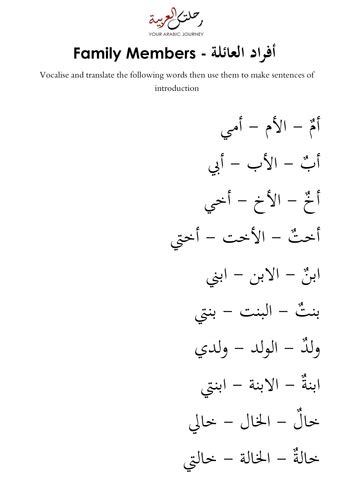 رحلتك العربية
YOUR ARABIC JOURNEY
Family Members - أفراد العائلة
Vocalise and translate the following words then use them to make sentences of
introduction
أمٌ – الأم – أمي
أبٌ – الأب – أبي
أخٌ – الأخ – أخي
أختٌ – الأخت – أختي
ابنٌ – الابن – ابني
بنتٌ – البنت – بنتي
ولدٌ – الولد – ولدي
ابنةٌ – الابنة – ابنتي
خالٌ – الخال – خالي
خالةٌ – الخالة – خالتي